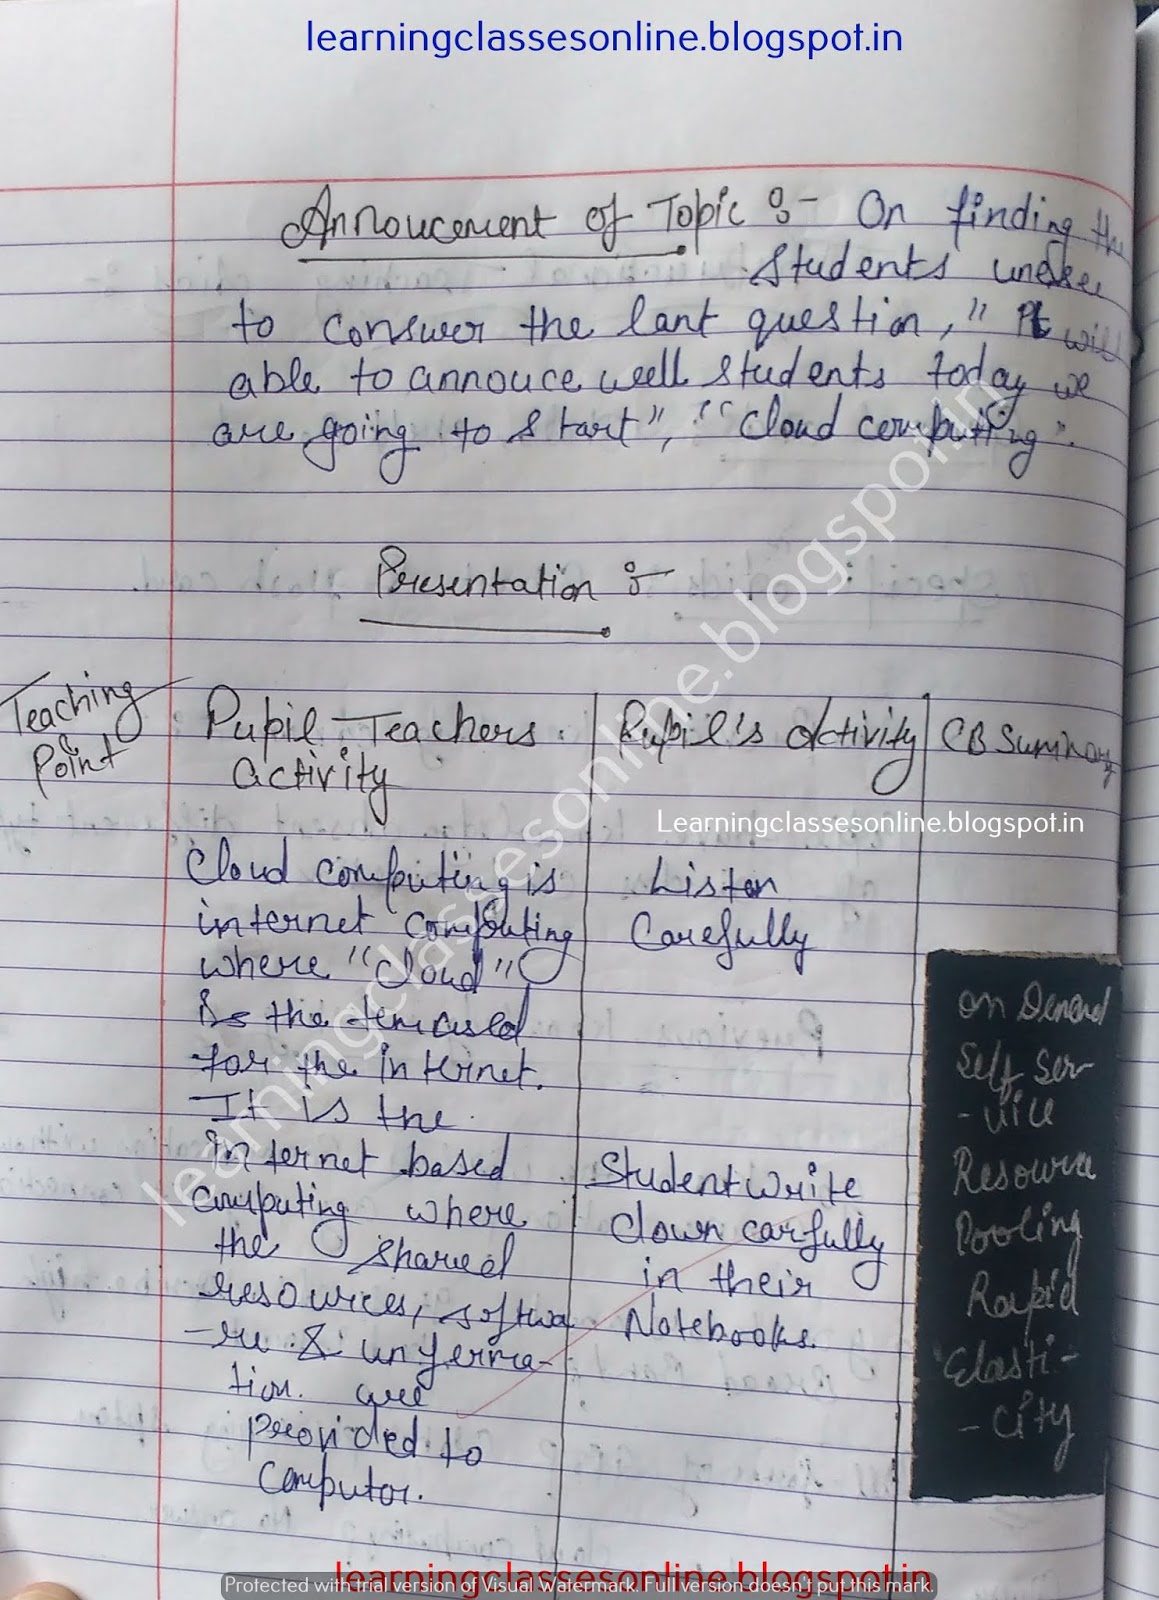 learningclassesonline.blogspot.in
Annoucement of Topic :- On finding the
students
to the question, " will
able to annouce well students today we
are going to start", "cloud computing".
Presentation :-
Teaching Point
Pupil Teachers activity
Pupil's Activity
CB Summary
Learningclassesonline.blogspot.in
Cloud computing is
internet computing
where "cloud"
is the
for the internet.
It is the
internet based
computing where
the shared
resources, softwa
-re & informa-
tion. are
provided to
Computor.
Listen
Carefully
Student write
down carfully
in their
Notebooks.
on Demand
Self Ser-
-vice
Resource
Pooling
Rapid
Elasti-
-city
learningclassesonline.blogspot.in
learningclassesonline.blogspot.in
Protected with trial version of Visual Watermark. Full version doesn't put this mark.